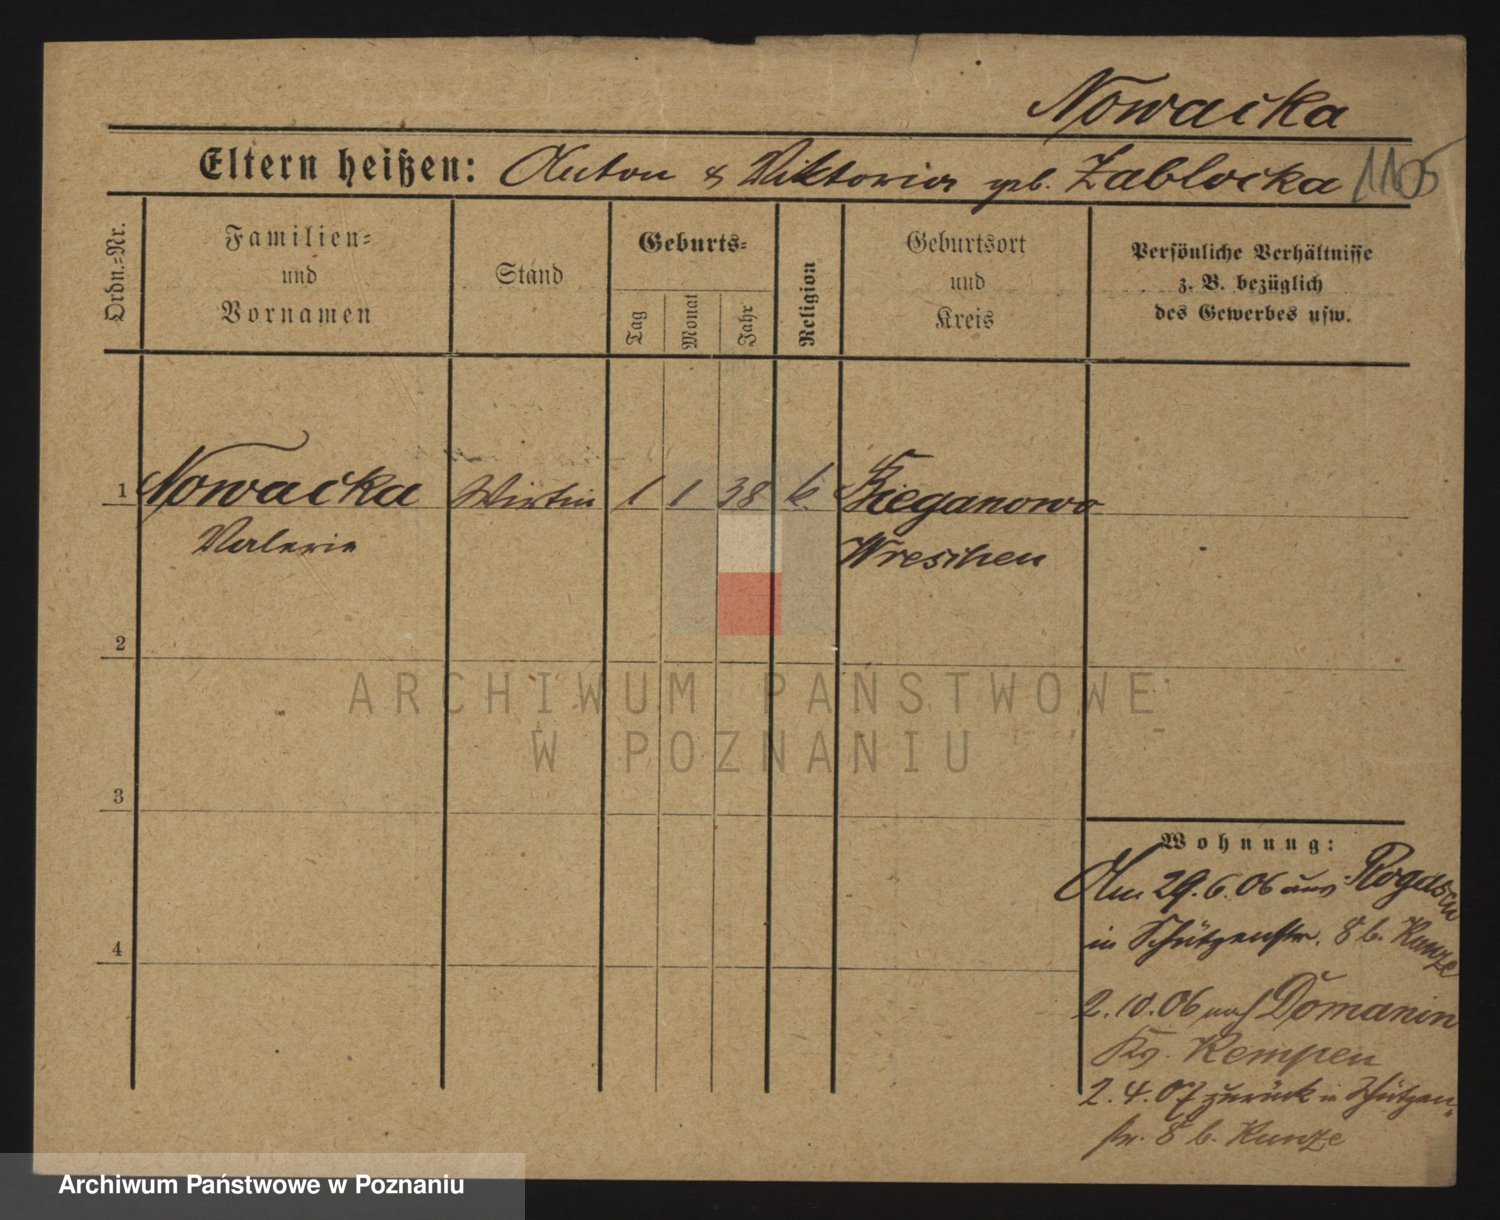 Nowacka
Eltern heißen: Anton & Viktoria geb. Zablocka 1105
Ordn.-Nr.
Familien- und Vornamen
Stand
Geburts-
Tag
Monat
Jahr
Religion
Geburtsort und Kreis
Persönliche Verhältnisse z. B. bezüglich des Gewerbes usw.
1 Nowacka Wirtin 1 1 38 k.
Valeria Wreschen
2
3
4
Wohnung:
Am 29.6.06 aus Rogasen
in Schützenstr. 8 b. Kunze
2.10.06 nach Domanin
Krs. Kempen
2.4.07 zurück in Schützen-
str. 8 b. Kunze
ARCHIWUM PAŃSTWOWE
W POZNANIU
Archiwum Państwowe w Poznaniu